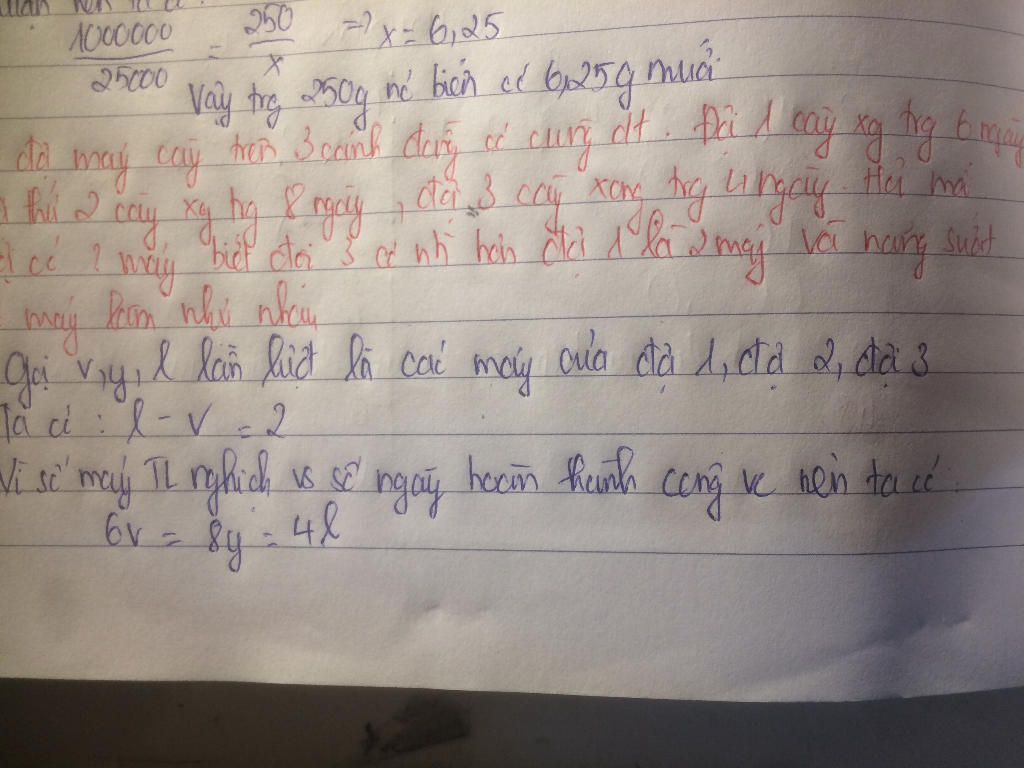 1000000 / 25000 = 250 / x => x = 6,25
Vậy trg 250g nc biển có 6,25g muối
đội máy cày trên 3 cánh đồng có cùng dt. Đội 1 cày xg trg 6 ngày
thứ 2 cày xg trg 8 ngày, đội 3 cày xong trg 4 ngày. Hỏi mỗi
có ? máy biết đội 3 có nh` hơn đội 1 là 2 máy và năng suất
máy làm như nhau
Gọi v, y, l lần lượt là các máy của đội 1, đội 2, đội 3
Ta có : l - v = 2
Vì số máy TL nghịch vs số ngày hoàn thành công vc nên ta có:
6v = 8y = 4l